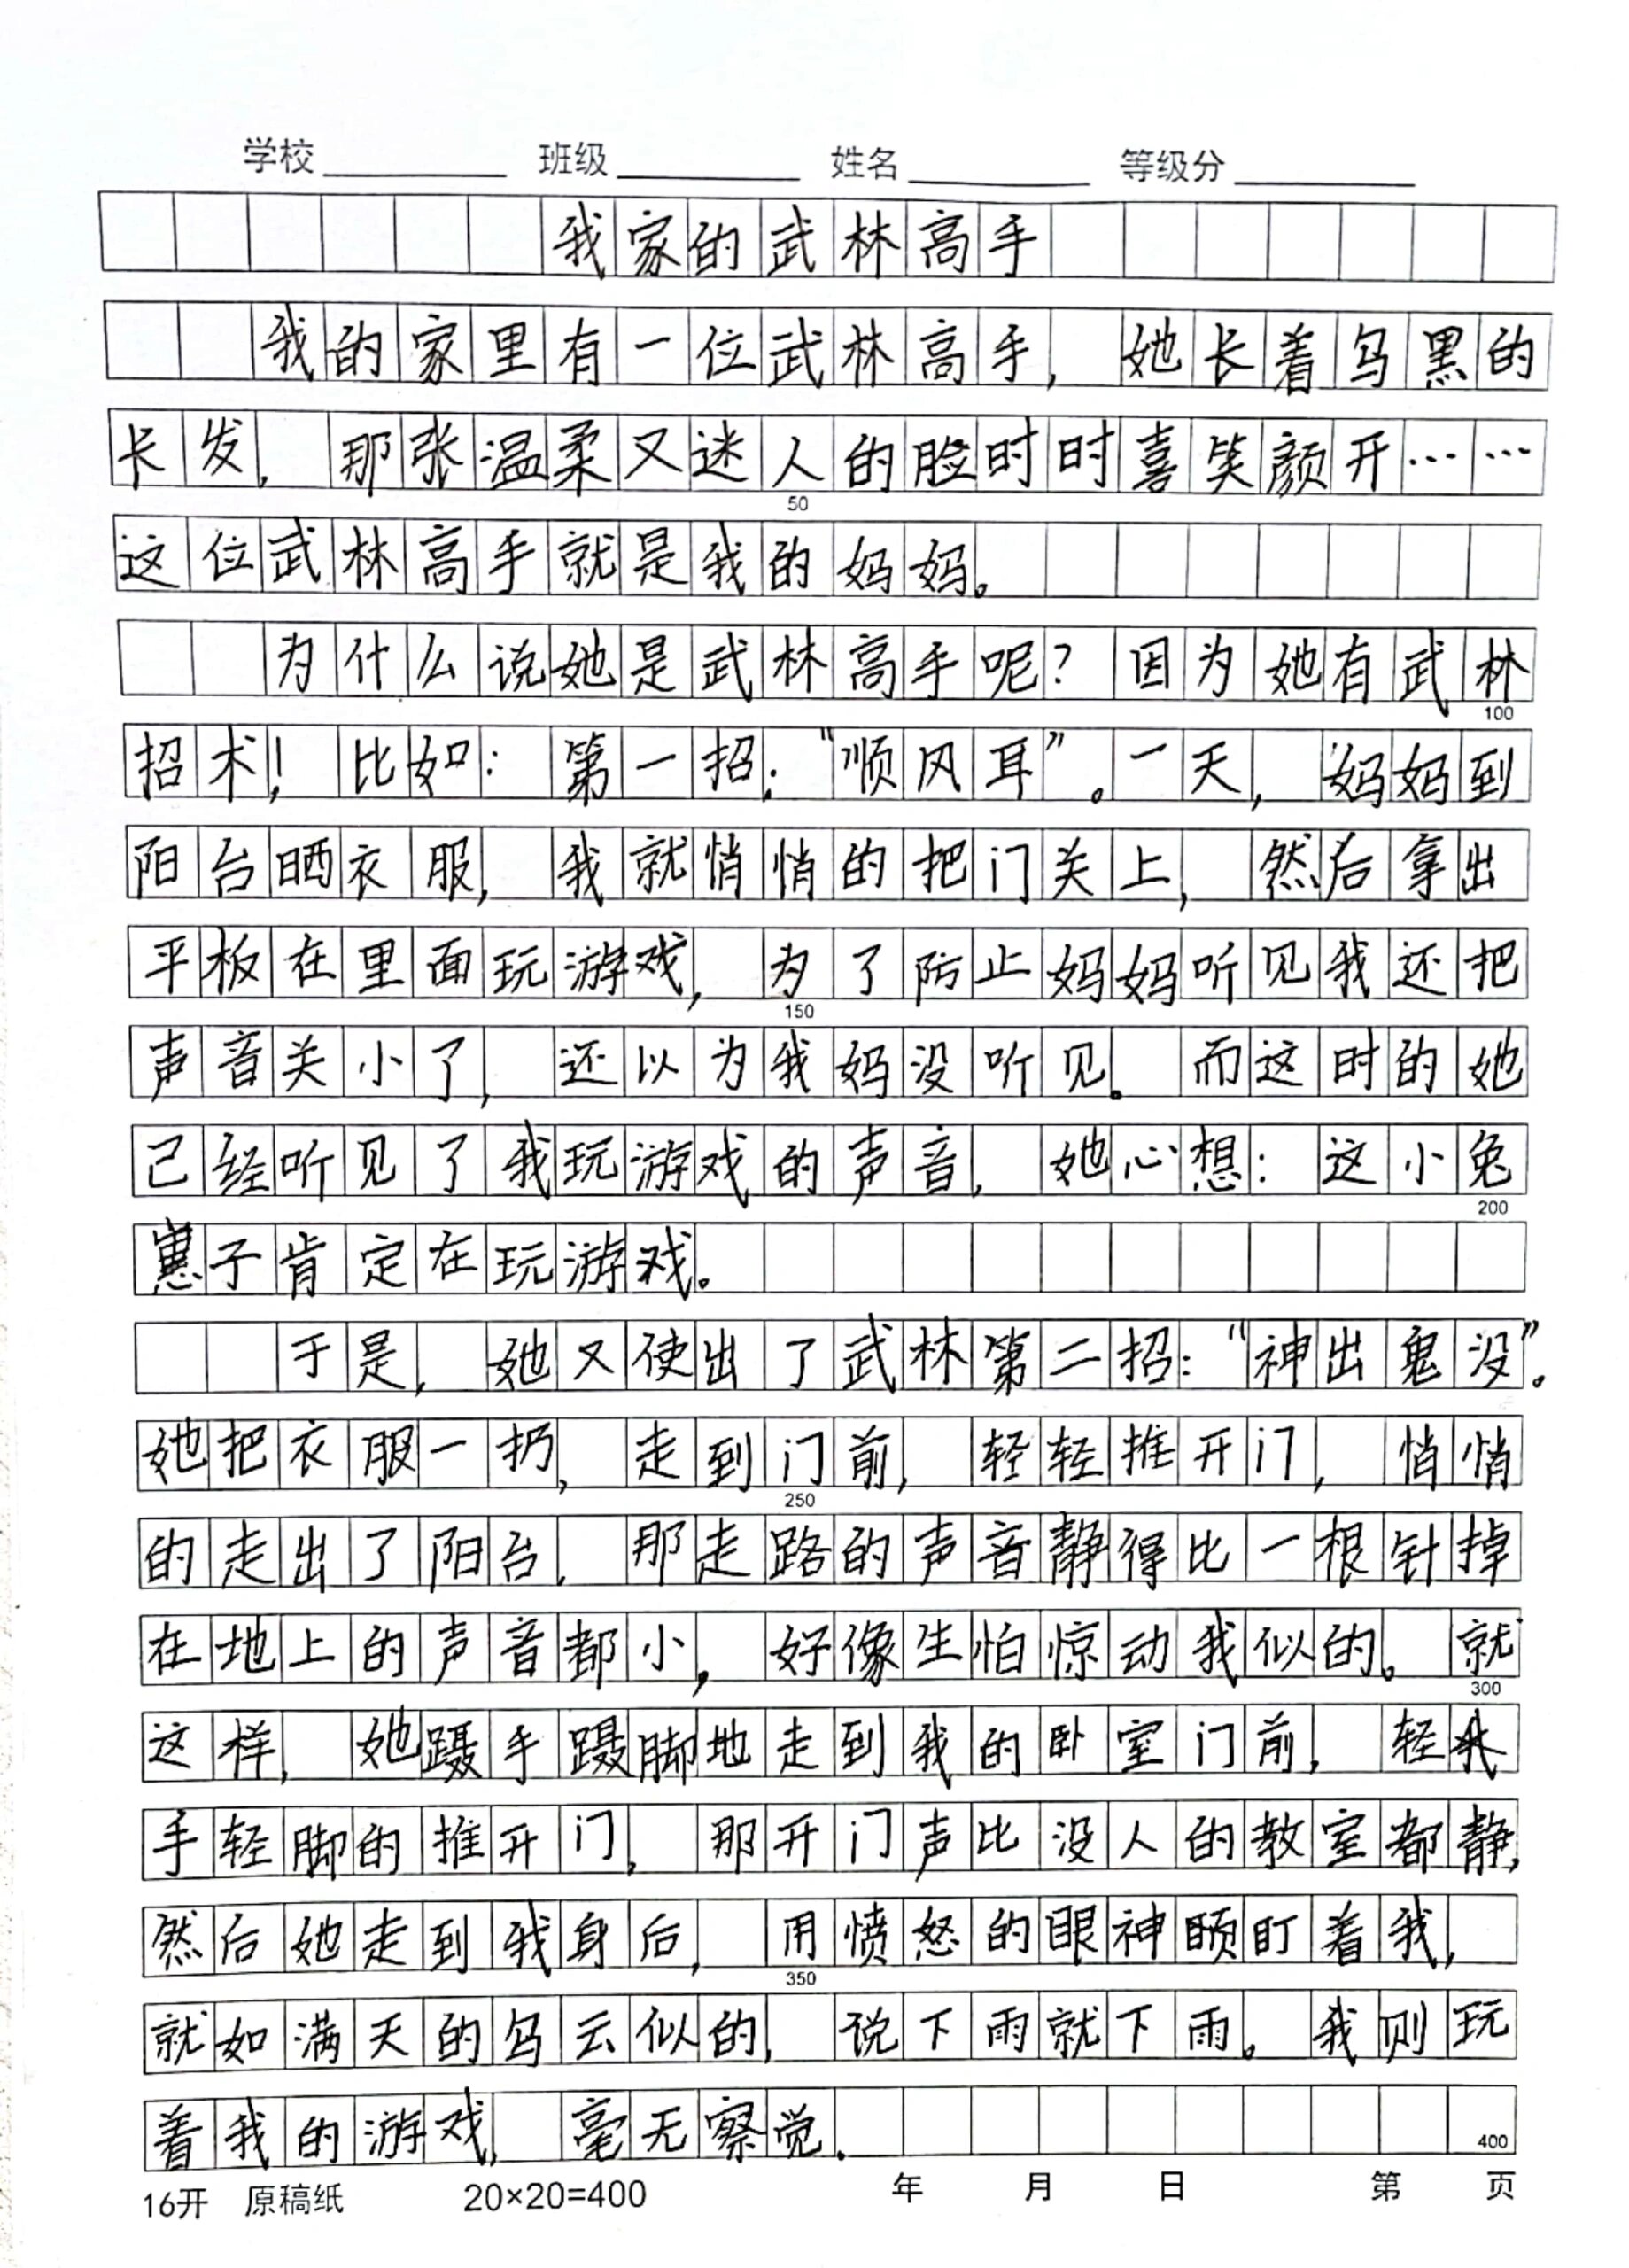 学校 班级 姓名 等级分
我家的武林高手
我的家里有一位武林高手，她长着乌黑的
长发，那张温柔又迷人的脸时时喜笑颜开……
50
这位武林高手就是我的妈妈。
为什么说她是武林高手呢？因为她有武林
100
招术！比如：第一招：“顺风耳”。一天，妈妈到
阳台晒衣服，我就悄悄的把门关上，然后拿出
平板在里面玩游戏，为了防止妈妈听见我还把
150
声音关小了，还以为我妈没听见。而这时的她
已经听见了我玩游戏的声音，她心想：这小兔
200
崽子肯定在玩游戏。
于是，她又使出了武林第二招：“神出鬼没”。
她把衣服一扔，走到门前，轻轻推开门，悄悄
250
的走出了阳台，那走路的声音静得比一根针掉
在地上的声音都小，好像生怕惊动我似的。就
300
这样，她蹑手蹑脚地走到我的卧室门前，轻
手轻脚的推开门，那开门声比没人的教室都静，
然后她走到我身后，用愤怒的眼神盯着我，
350
就如满天的乌云似的，说下雨就下雨。我则玩
着我的游戏，毫无察觉。
400
16开 原稿纸 20×20=400 年 月 日 第 页